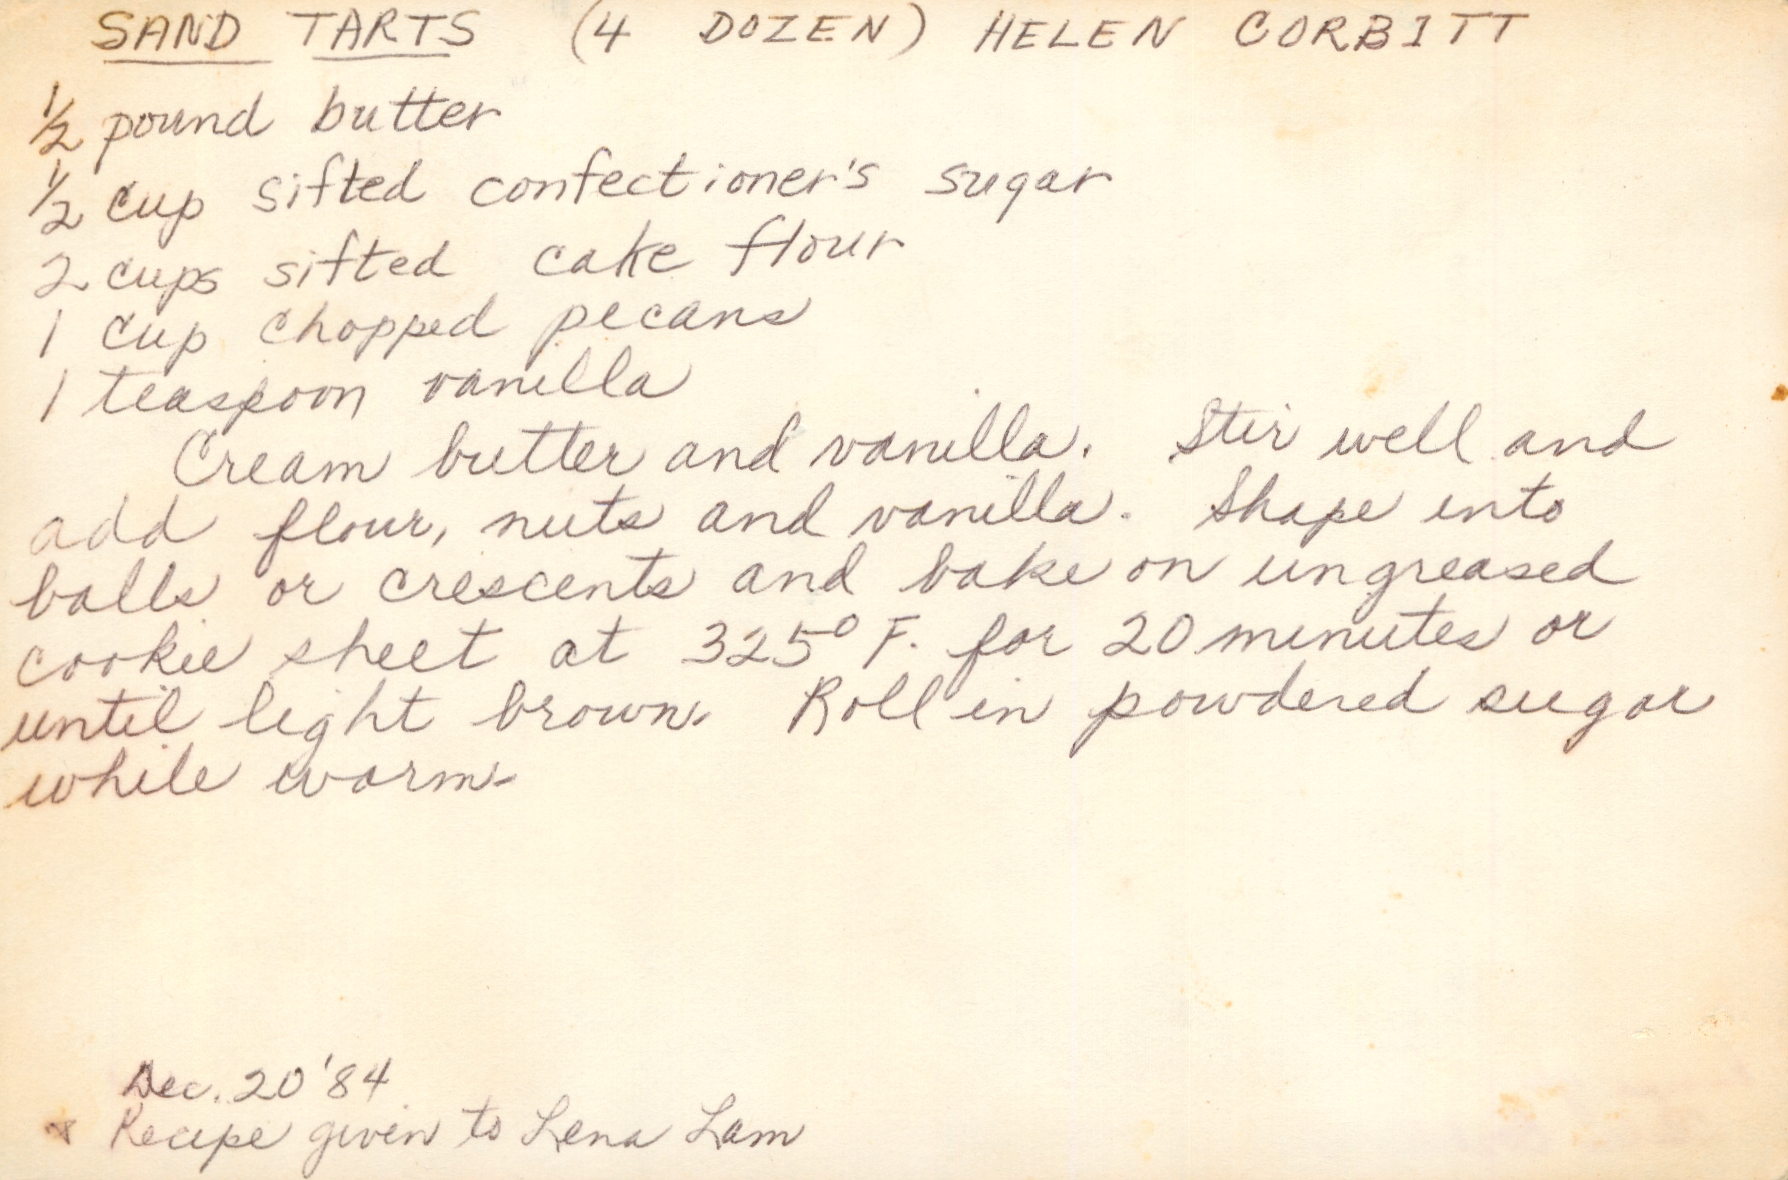 SAND TARTS (4 DOZEN) HELEN CORBITT
1/2 pound butter
1/2 cup sifted confectioner's sugar
2 cups sifted cake flour
1 cup chopped pecans
1 teaspoon vanilla
Cream butter and vanilla. Stir well and
add flour, nuts and vanilla. Shape into
balls or crescents and bake on ungreased
cookie sheet at 325° F. for 20 minutes or
until light brown. Roll in powdered sugar
while warm.
Dec. 20 '84
* Recipe given to Lena Lam